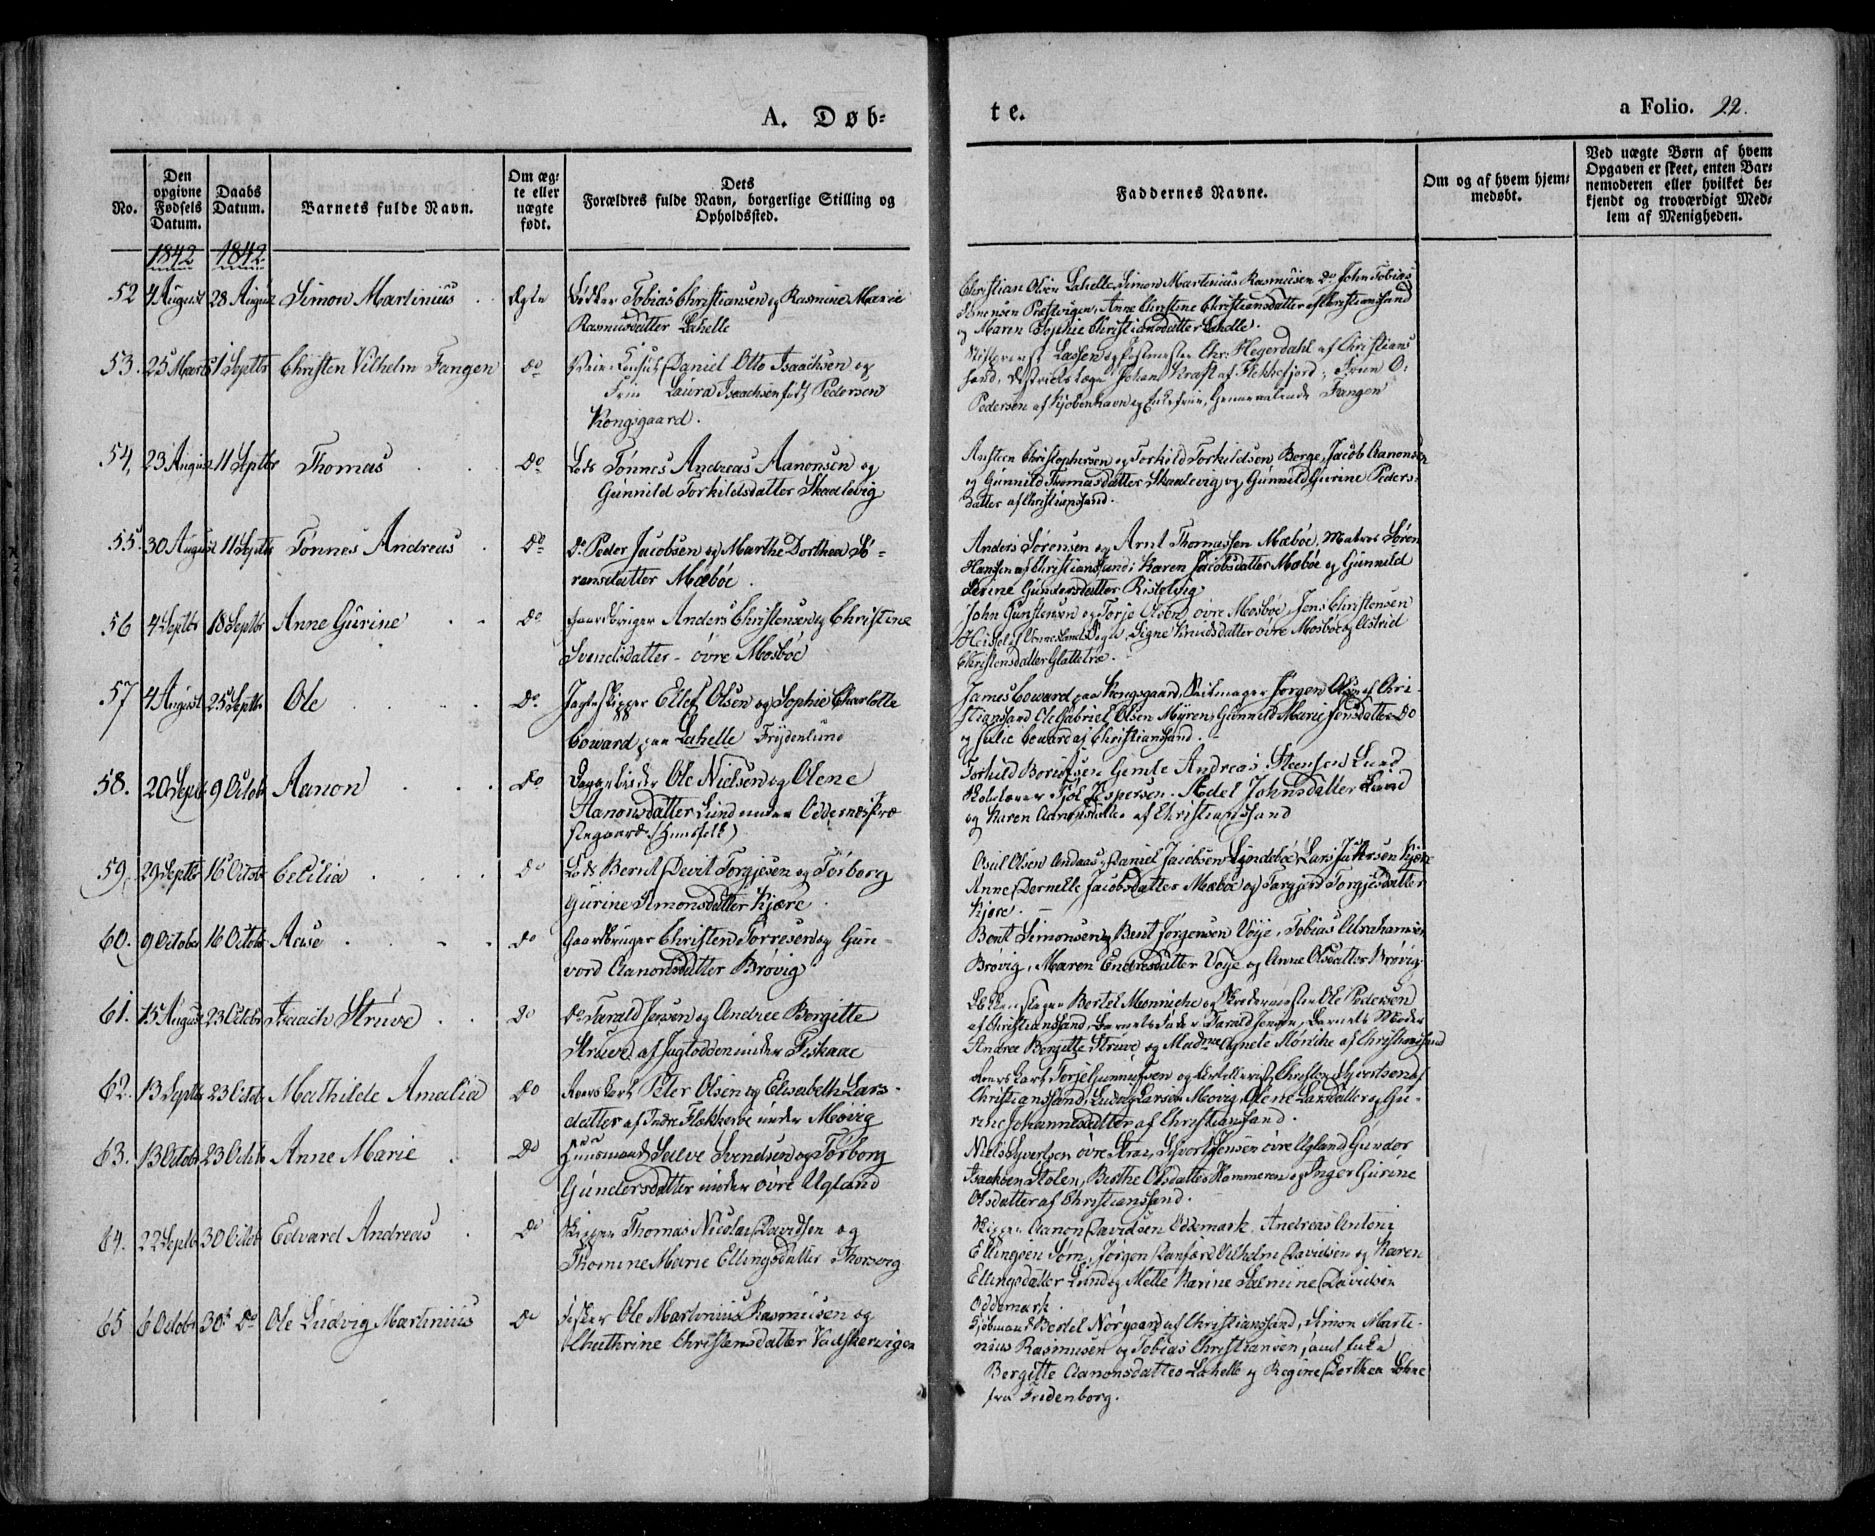 A. Døb-
te.
a Folio. 22.
No.
Den
opgivne
Fødsels
Datum.
Daabs
Datum.
Barnets fulde Navn.
Om æg-
te eller
uægte
født.
Dets
Forældres fulde Navn, borgerlige Stilling og
Opholdssted.
Faddernes Navne.
Om og af hvem hjem-
medøbt.
Ved uægte Børn af hvem
Opgaven er skeet, enten Bar-
nemoderen eller hvilket be-
kjendt og troværdigt Med-
lem af Menigheden.
1842 1842
52 4 August 28 August Simon Martinius Ægte Bødker Tobias Christiansen og Rasmine Marie
Rasmusdatter Lahelle
Christian Olsen Lahelle, Simon Martinius Rasmusen Do John Tobias
Præstvigen, Anne Christine Christiansdatter af Christiansand
og Maren Sophie Christiansdatter Lahelle.
53. 25 Marts 1 Septbr Christen Vilhelm Fangen Do Consul Daniel Otto Isaachsen og
Frue Laura Isaachsen født Pedersen
Kongsgaard.
Stiftprovst Lassen og Postmester Chr: Hegerdahl af Christians
sand, Districtslæge Johan Kraft af Flekkefjord, Frue O:
Pedersen af Kjøbenhavn og Enkefrue, Fangen
54, 23 August 11 Septbr Thomas Do Lods Tønnes Andreas Aanonsen og
Gunnild Torkildsdatter Skaalevig
Austen Christophersen og Torkild Torkildsen Berge, Jacob Aanonsen
og Gunnild Thomasdatter Skaalevig og Gunnild Gurine Peders-
datter af Christiansand.
55. 30 August 11 Septbr Tønnes Andreas Do Do Peder Jacobsen og Marthe Dorthea Sø-
rensdatter Mæbøe.
Anders Sørensen og Arnt Thomassen Mæbøe, Matros Søren
Hansen af Christiansund; Karen Jacobsdatter Mæbøe og Gunnild
Serine Gundersdatter
56 4 Septbr 18 Septbr Anne Gurine Do Gaardbruger Anders Christensen og Christine
Svendsdatter - øvre Mosbøe
John Gunstensen og Torje Olsen øvre Mosbøe, Jens Christensen
Sogn, Signe Knudsdatter øvre Mosbøe og Astrid
Christensdatter Glattetræ.
57 4 August 25 Septbr Ole Do Jagteskipper Ellef Olsen og Sophie Charlotte
Coward paa Lahelle Frydenlund
James Coward paa Kongsgaard, Seilmager Jørgen Olsen af Chri-
stiansand Ole Gabriel Olsen Myren, Gunnild Marie Jensdatter Do
og Julie Coward af Christiansand.
58. 20 Septb 9 Octobr Aanon Do Ole Nielsen og Olene
Aanonsdatter Lund under Oddernes Præ
stegaard (Huusfolk)
Torkild Andreas Steensen Lund
Jespersen. Adel Johnsdatter Lund
og Karen Aanonsdatter af Christiansand
59, 29 Septbr 16 Octobr Cecilia Do Lods Bernt Devit Torgjesen og Torborg
Gurine Simonsdatter Kjære.
Asul Olsen Andaas, Daniel Jacobsen Lyndeboe, Lars Kjære
Anne Pernelle Jacobsdatter Mæbøe og Torgjerd Torgjesdatter
Kjære.
60. 9 October 16 Octobr Aase Do Gaardbruger Christen Torresen og Gun-
vord Aanonsdatter Brøvig
Bent Simonsen og Bent Jørgensen Voje, Tobias Abrahamsen
Brøvig, Maren Endresdatter Voje og Anne Olsdatter Brøvig
61. 15 August 23 Octobr Isaach Struve Do Do Tarald Jensen og Andrea Bergitte
Struve af Fugloddenunder Fiskaae
Bertel Mønniche og Skrædermester Ole Pedersen
af Christiansand, Barnets Fader Tarald Jensen, Barnets Moder
Andrea Bergitte Struve og Madme Agnete Mønniche af Christiansand
62. 13 Septbr 23 Octobr Mathilde Amalia Do Peter Olsen og Elisabeth Lars-
datter af Indre Flekkerøe under Møvig
Torje Gunnufsen og Christen Syvertsen af
Christiansand, Ludvig Larsen Møvig, Olene Larsdatter og Gu-
rine Johannesdatter af Christiansand.
63. 13 Octobr 23 Octbr Anne Marie Do Huusmand Salve Svendsen og Torborg
Gundersdatter under øvre Ugland
Niels Syvertsen øvre Straie, Syvert Jensen øvre Ugland Gundor
Isachsen Stolen, Berthe Olsdatter Hammeren og Inger Gurine
Olsdatter af Christiansand.
64. 22 Septbr 30 Octobr Edvard Andreas Do Skipper Thomas Nicolai Davidsen og
Thomine Marie Ellingsdatter Thorsvig
Skipper Aanon Davidsen Oddemark, Andreas Antoni
Ellingsen Sørn, Jørgen Vilhelm Davidsen og Karen
Ellingsdatter Lund og Melle Karine Salmine Davidsen
Oddemark.
65 6 Octobr 30t Do Ole Ludvig Martinius Do Fisker Ole Martinius Rasmusen og
Chathrine Christensdatter Vadskervigen
Kjøbmand Bertel Nørgaard af Christiansand, Simon Marti-
nius Rasmusen og Tobias Christiansen, samt Enke
Bergitte Aanonsdatter Lahelle og Regine Dorthea
fra Fredenborg.